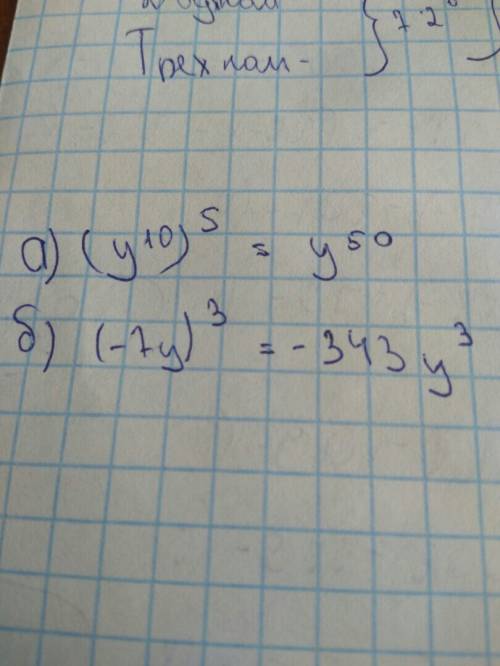 Трехком-
} 7·2
а) (y¹⁰)⁵ = y⁵⁰
б) (-7y)³ = -343y³